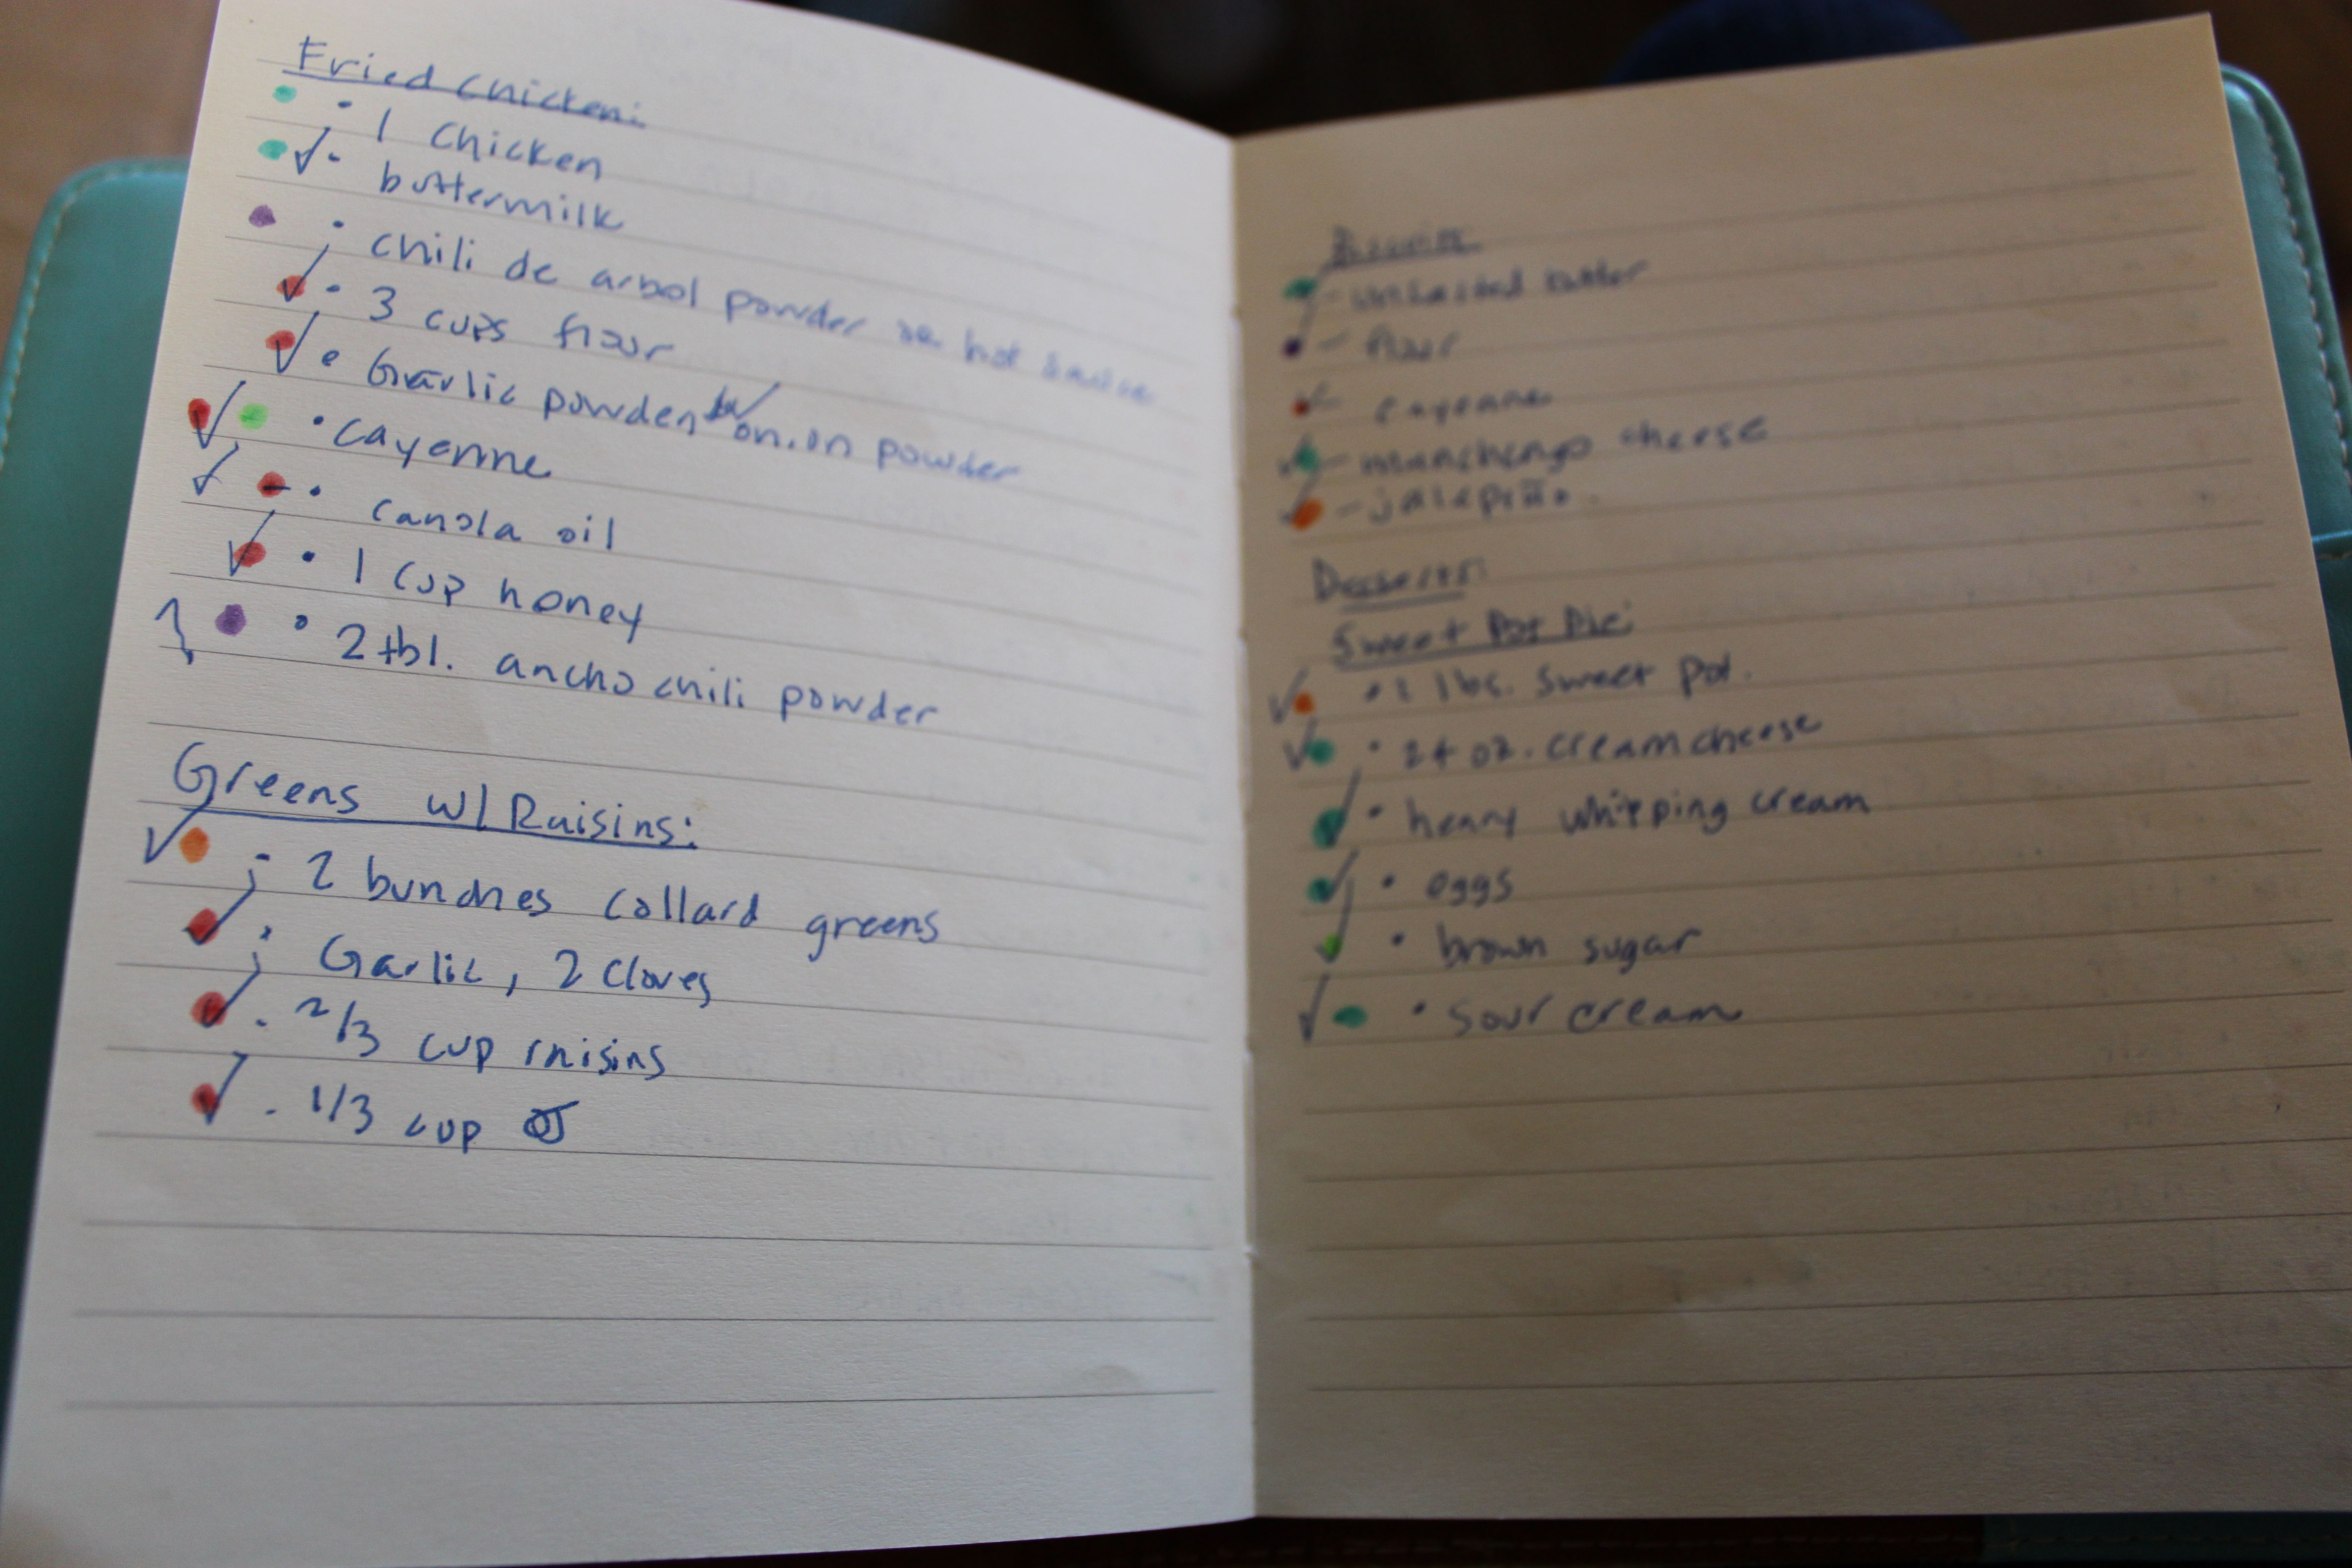 Fried Chicken:
1 Chicken
buttermilk
chili de arbol powder or hot sauce
3 cups flour
Garlic powder onion powder
cayenne
canola oil
1 cup honey
2 tbl. ancho chili powder
Greens w/ Raisins:
2 bunches collard greens
Garlic, 2 cloves
2/3 cup raisins
1/3 cup OJ
unsalted butter
flour
cayenne
manchengo cheese
jalapeño
Desserts:
Sweet Pot Pie:
lbs. sweet pot.
24 oz. cream cheese
heavy whipping cream
eggs
brown sugar
sour cream